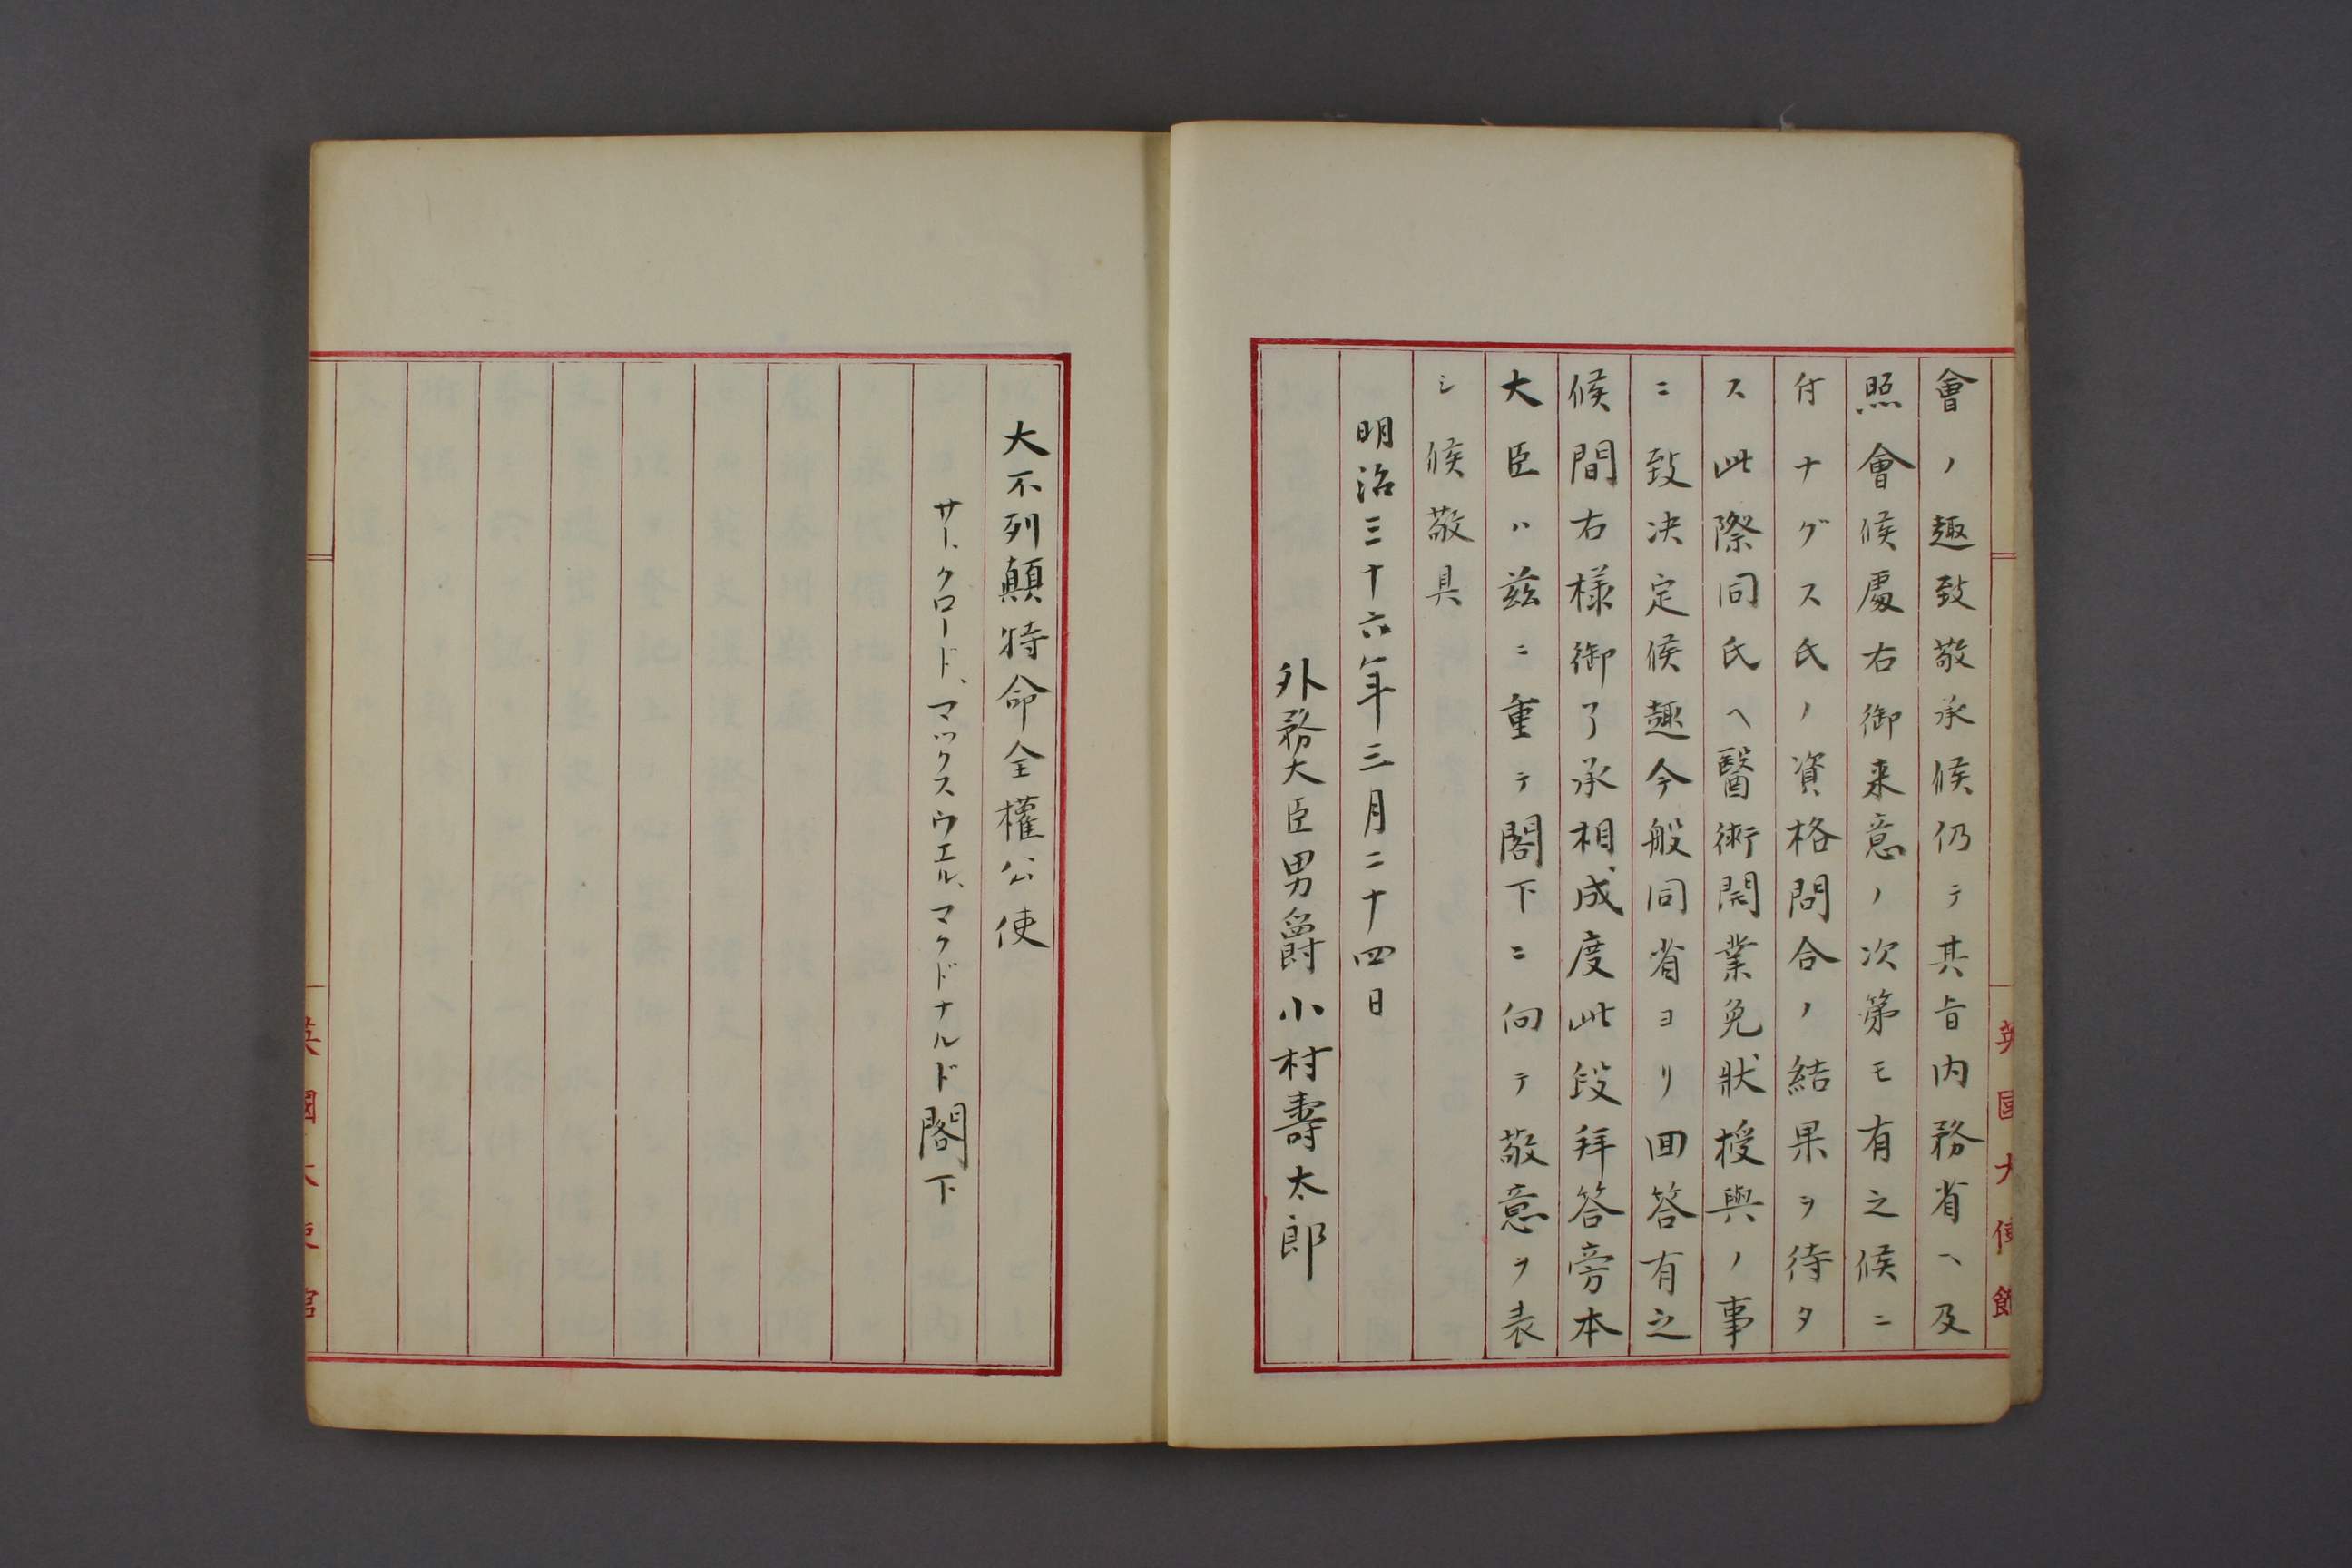 英國大使館
會ノ趣致敬承候仍テ其旨内務省ヘ及
照會候處右御来意ノ次第モ有之候ニ
付ナグス氏ノ資格問合ノ結果ヲ待タ
ス此際同氏ヘ醫術開業免狀授與ノ事
ニ致決定候趣今般同省ヨリ回答有之
候間右様御了承相成度此段拜答旁本
大臣ハ茲ニ重テ閣下ニ向テ敬意ヲ表
シ候敬具
明治三十六年三月二十四日
外務大臣男爵小村壽太郎
大不列顛特命全權公使
サー、クロード、マックスウエル、マクドナルド閣下
英國大使館